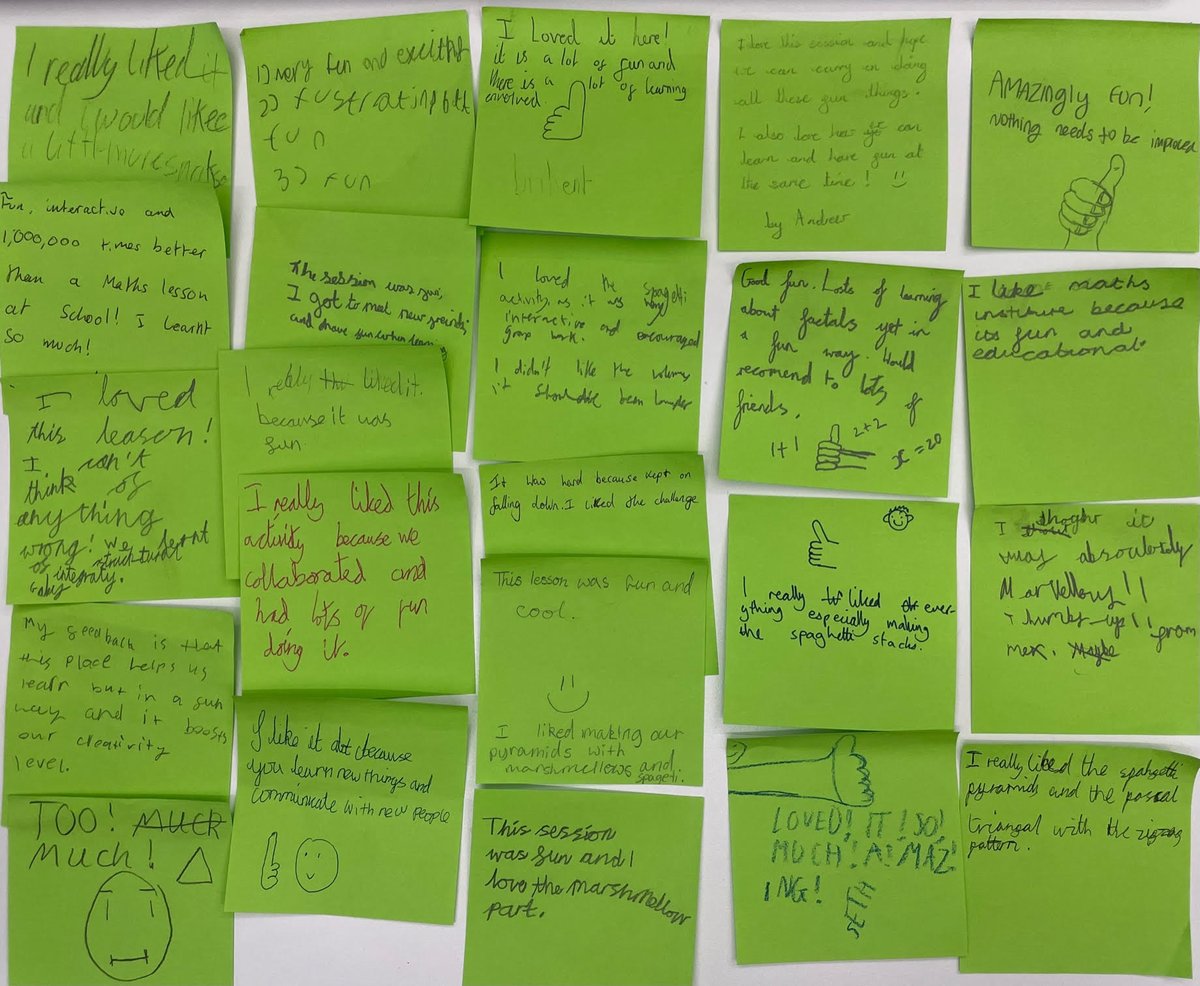 I really liked it
and i would likee
a
1) very fun and
2) fustrating
fun
3) fun
I Loved it here!
it is a lot of fun and
there is a lot of learning
envolved.
I love this session and hope
we can carry on doing
all these fun things.
I also love how we can
learn and have fun at
the same time!
by
AMAZingly Fun!
Nothing needs to be improved
Fun, interactive and
1,000,000 times better
than a Maths lesson
at School! I Learnt
so much!
The session was fun,
I got to meet new freinds,
and have fun when
I loved the spagetti
activity, as it was very
interactive and encouraged
group work.
I didn't like the volume,
it should be been louder
Good fun. Losts of learning
about factals yet in
a fun way. Would
recomend to lots of
friends.
1+1 2+2 x=20
I like maths
institute because
its fun and
educational.
I loved
this leason!
I can't
think of
anything
wrong! We learnt
of
I really liked it.
because it was
fun
I really liked this
activity because we
collaborated and
had lots of fun
doing it.
It was hard because kept on
falling down. I liked the challenge
I really liked ever-
ything especially making
the spaghetti stacks.
I thoghr it
was absoulertely
Marvellous!!
Thumbs-up!! from
me.
My feedback is that
this place helps us
learn but in a fun
way and it boosts
our creativity
level.
I like it because
you learn new things and
communicate with new people
This lesson was fun and
cool.
I liked making our
pyramids with
marshmellows and
spageti.
TOO! MUCH
Much!
This session
was fun and I
love the marshmellow
part.
LOVED! IT! SO!
MUCH! A! MAZ!
ING!
SETH
I really liked the spahgetti
pyramids and the pascal
triangal with the zigzag
pattern.